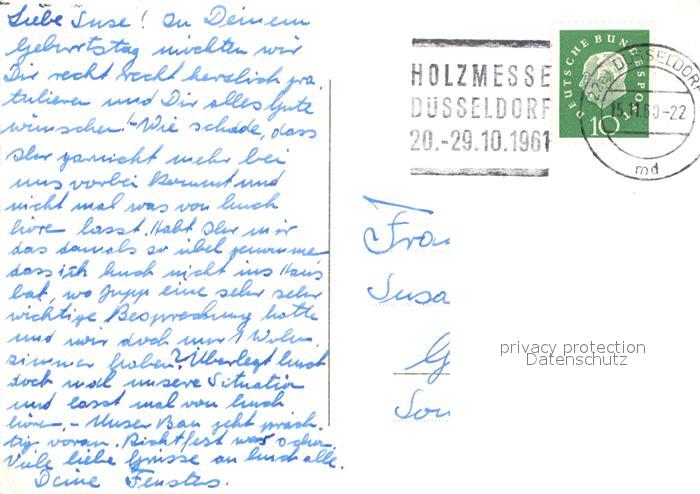 Liebe Suse! Zu Deinem
Geburtstag möchten wir
Dir recht recht herzlich gra-
tulieren und Dir alles Gute
wünschen! - Wie schade, dass
Ihr garnicht mehr bei
uns vorbei kommt und
nicht mal was von Euch
hören lasst. Habt Ihr mir
das damals so übel genommen
dass ich Euch nicht ins Haus
bat, wo Jupp eine sehr sehr
wichtige Besprechung hatte
und wir doch nur 1 Wohn-
zimmer haben? Überlegt Euch
doch mal unsere Situation
und lasst mal von Euch
hören. - Unser Bau geht präch-
tig voran. Richtfest war schon.
Viele liebe Grüsse an Euch alle.
Deine Fensters.
HOLZMESSE
DÜSSELDORF
20.-29.10.1961
DEUTSCHE BUNDESPOST
10
DÜSSELDORF
15.11.60-22
md
Frau
Susa
G
Son
privacy protection
Datenschutz